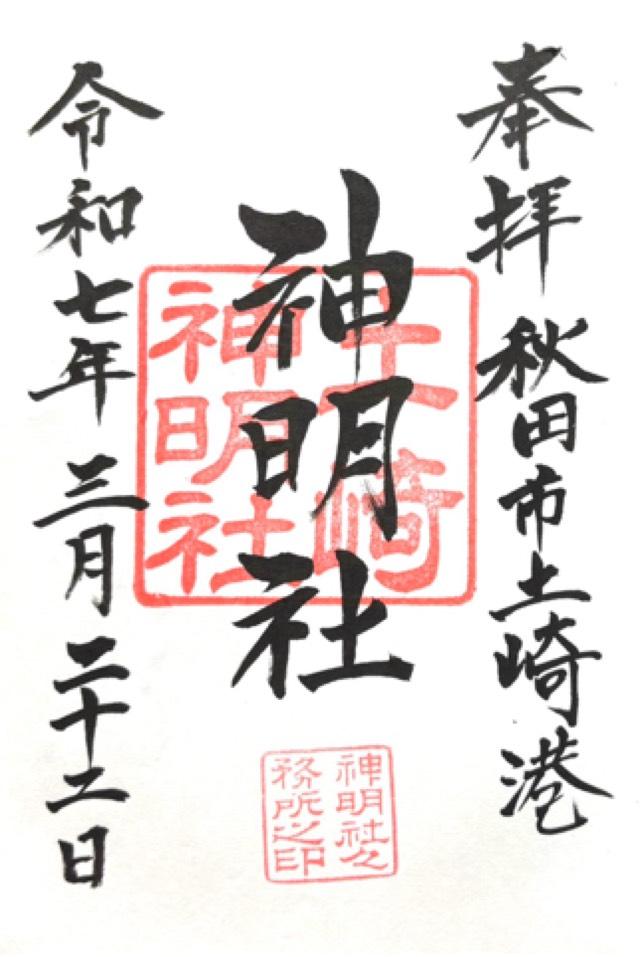 奉拝 秋田市土崎港
神明社
令和七年 三月 二十二日
土崎
神明社
神明社々
務所之印